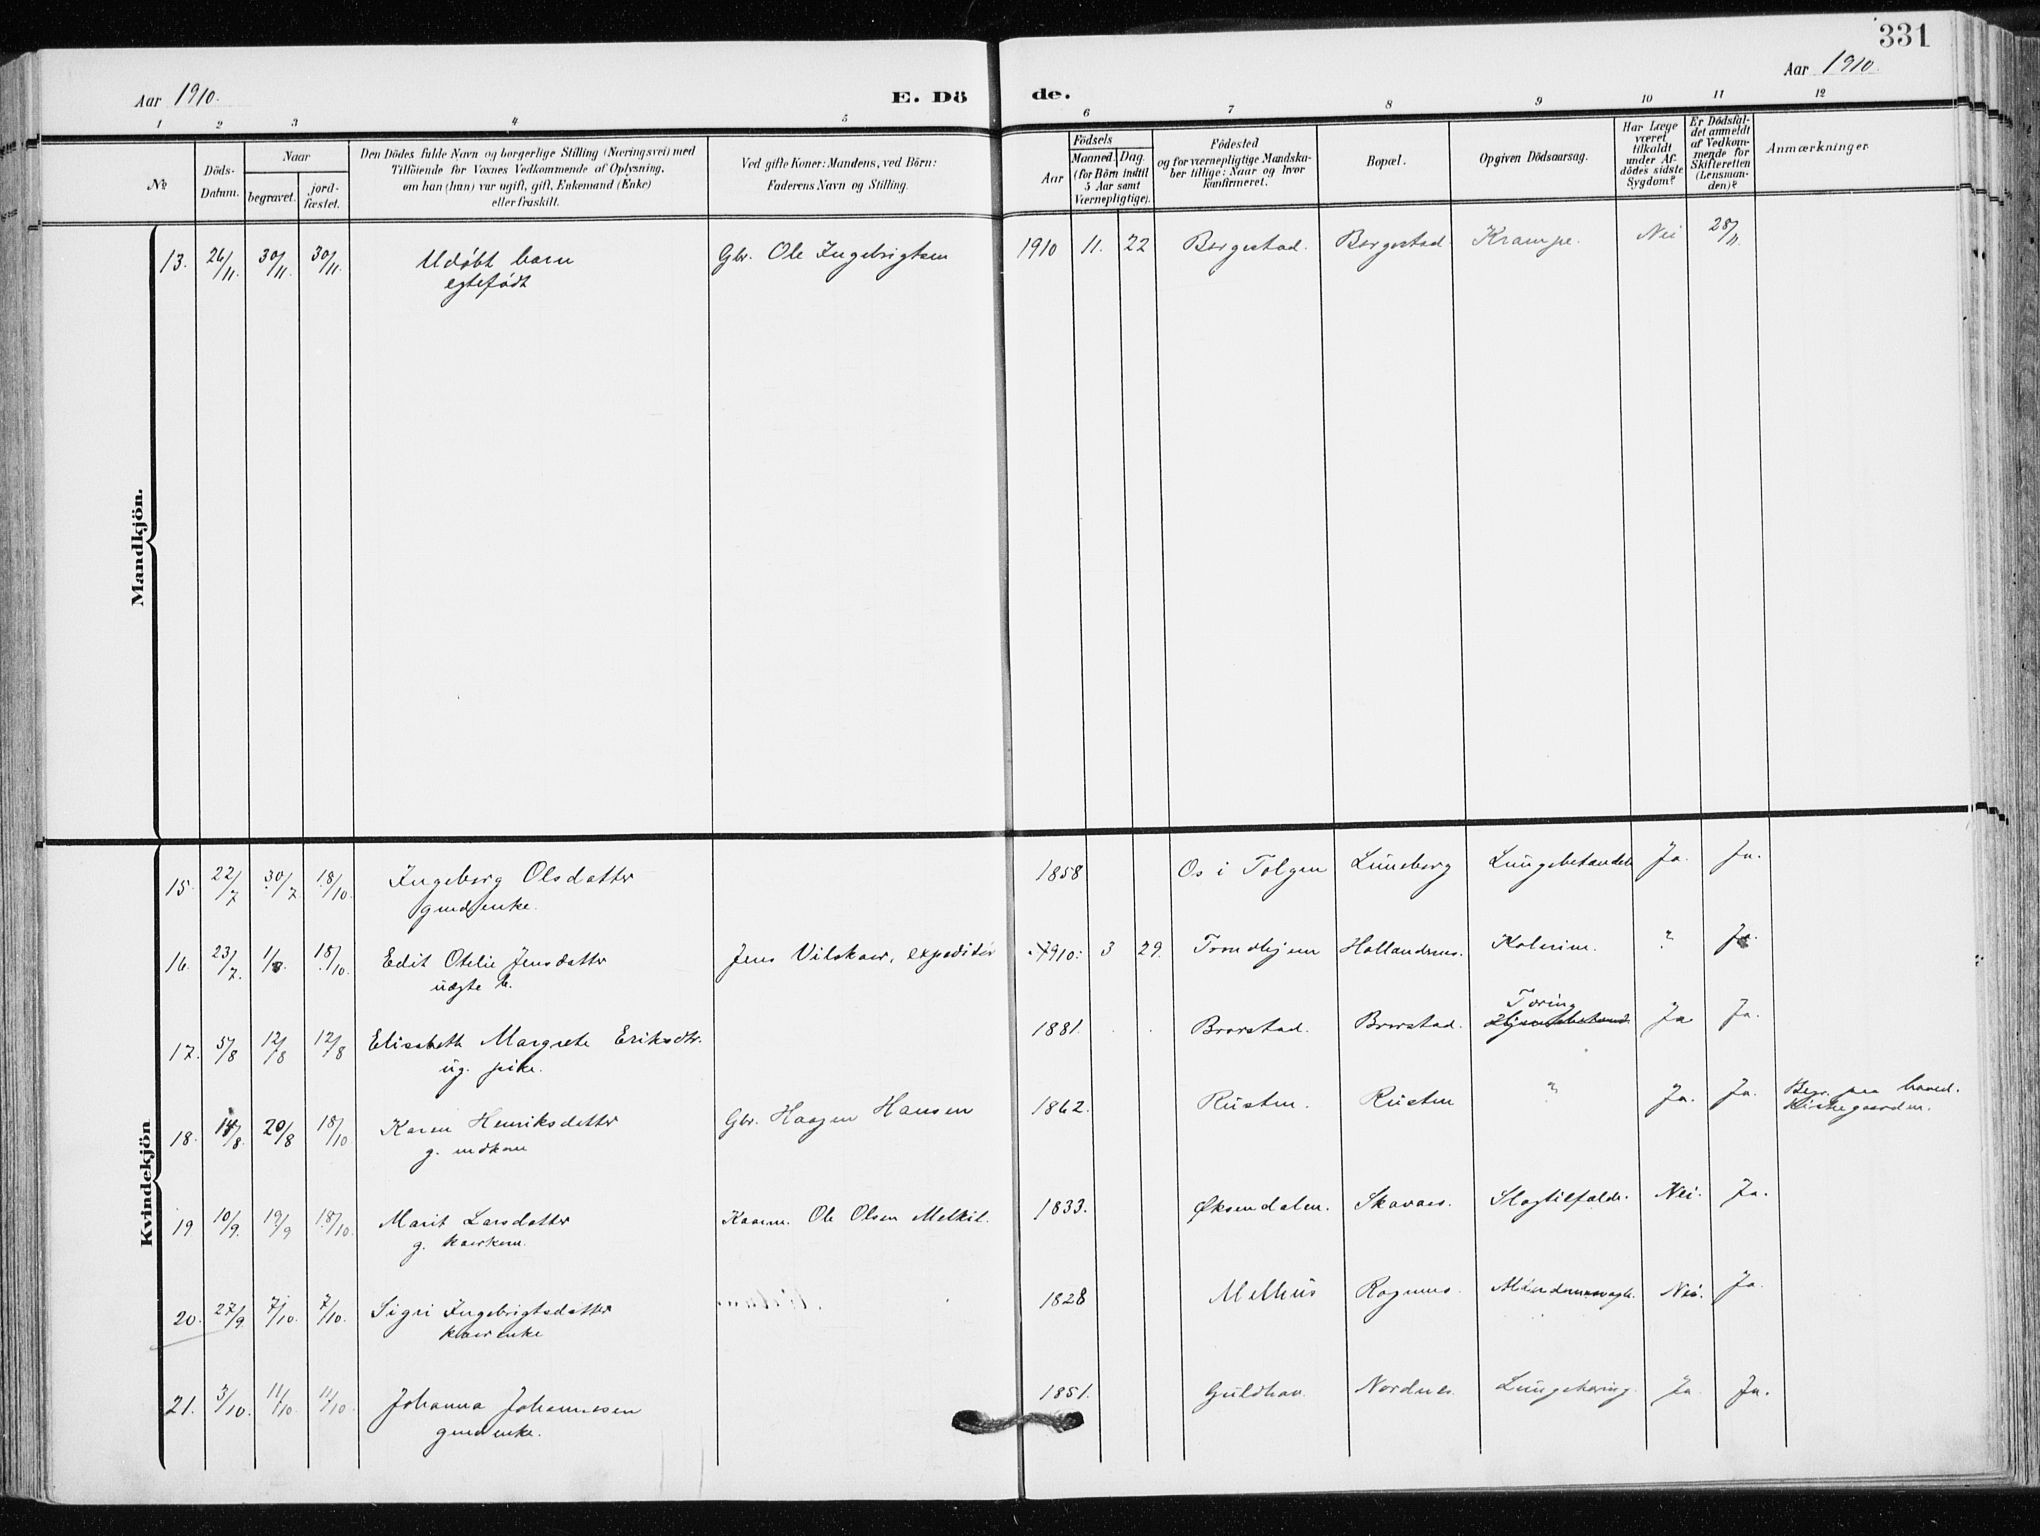 331
Aar 1910.
E. Dö
de.
Aar 1910.
1 2 3 4 5 6 7 8 9 10 11 12
№
Döds-
Datum.
Naar
begravet.
jord-
fæstet.
Den Dödes fulde Navn og borgerlige Stilling (Næringsvei) med
Tilföiende for Voxnes Vedkommende af Oplysning,
om han (hun) var ugift, gift, Enkemand (Enke)
eller fraskilt.
Ved gifte Koner: Mandens, ved Börn:
Faderens Navn og Stilling.
Födsels
Aar
Maaned.
Dag.
(for Börn indtil
5 Aar samt
Værnepligtige).
Födested
og for værnepligtige Mandska-
ber tillige: Naar og hvor
konfirmeret.
Bopæl.
Opgiven Dödsaarsag.
Har Læge
været
tilkaldt
under Af-
dödes sidste
Sygdom?
Er Dödsfal-
det anmeldt
af Vedkom-
mende for
Skifteretten
(Lensman-
den)?
Anmærkninger
Mandkjön.
13. 26/11. 30/11. 30/11. Udøbt barn Gbr. Ole Ingebrigtsen 1910 11. 22 Borgestad. Borgestad. Krampe. Nei 28/11.
egtefødt
Kvindekjön
15. 22/7 30/7 18/10. Ingeborg Olsdatter 1858 Os i Tolgen Lüneborg Lungebetændel Ja. Ja.
gmdenke.
16. 23/7. 18/10. Edit Otelie Jensdatter Jens Vilskaer, expeditör 1910. 3 29. Trondhjem Hollandsnes. Kolerine. ? Ja.
uægte b.
17. 5/8 12/8 12/8 Elisabeth Margrete Eriksdtr. 1881. Brorstad. Brorstad. Tæring Ja Ja.
ug. pike.
18. 14/8. 20/8 18/10 Karen Henriksdatter Gbr. Haagen Hansen 1862. Rusten. Rusten " Ja. Ja. Begr. paa hoved-
g. mdkone kirkegaarden.
19 10/9. 19/9 18/10. Marit Larsdatter Kaarm. Ole Olsen Melkil. 1833. Øksendalen. Skavaas. Slagtilfælde. Nei. Ja.
g. kaarkone.
20. 27/9 7/10. 7/10. Sigri Ingebrigtsdatter 1828 Melhus Rognnes. Alderdomssvagh. Nei. Ja.
kaarenke
21. 3/10. 11/10. 11/10. Johanna Johannesen 1851. Guldhav. Nordnes. Lungetæring. Ja. Ja.
gmdenke.